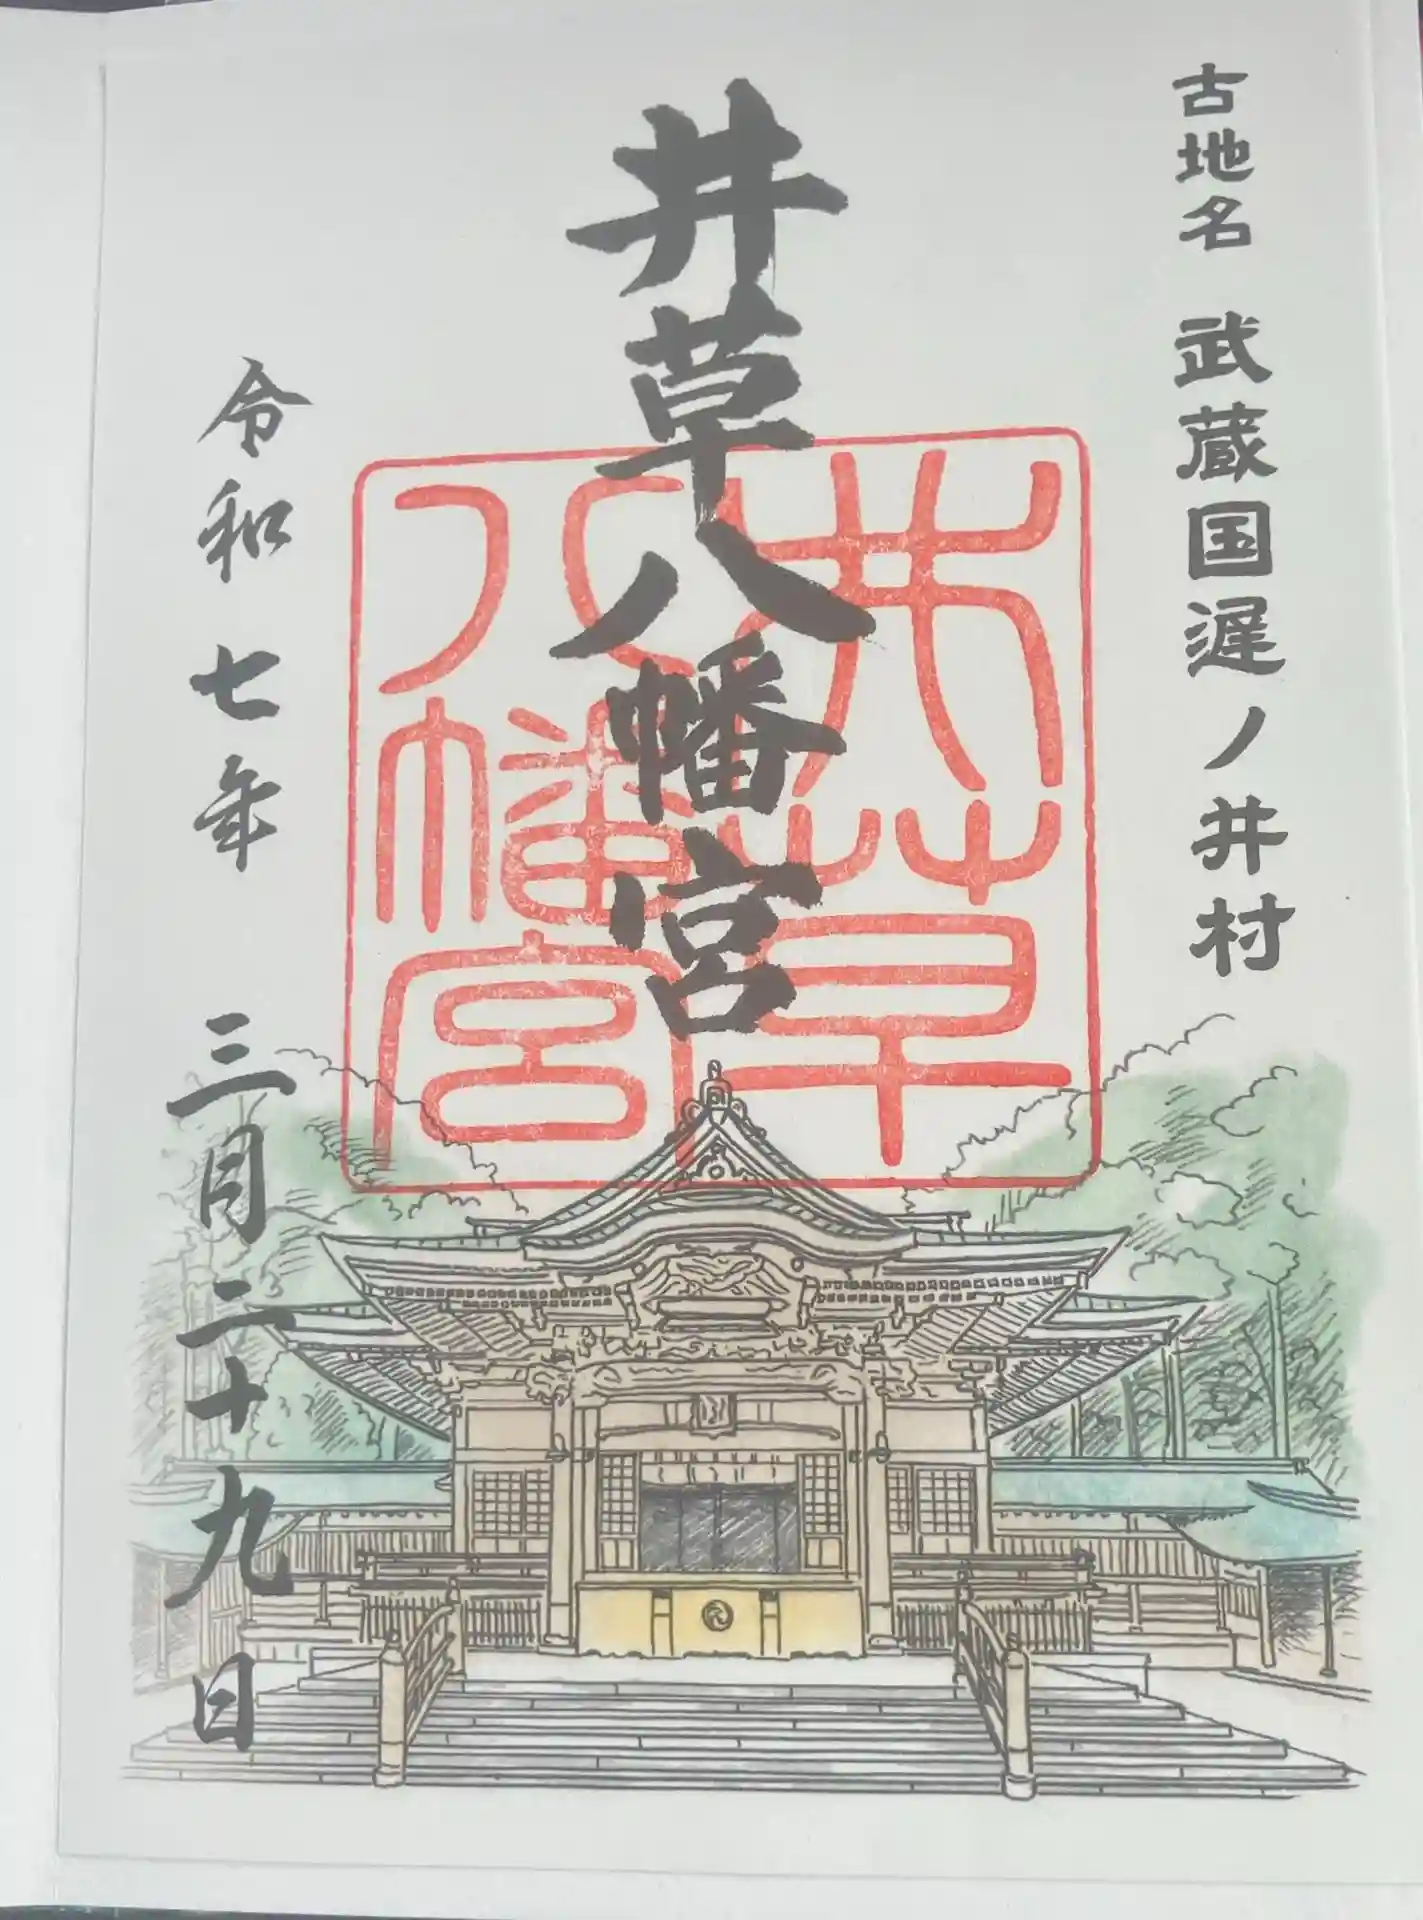 古地名 武蔵国遅ノ井村
井草八幡宮
井草
八幡宮
令和七年 三月二十九日